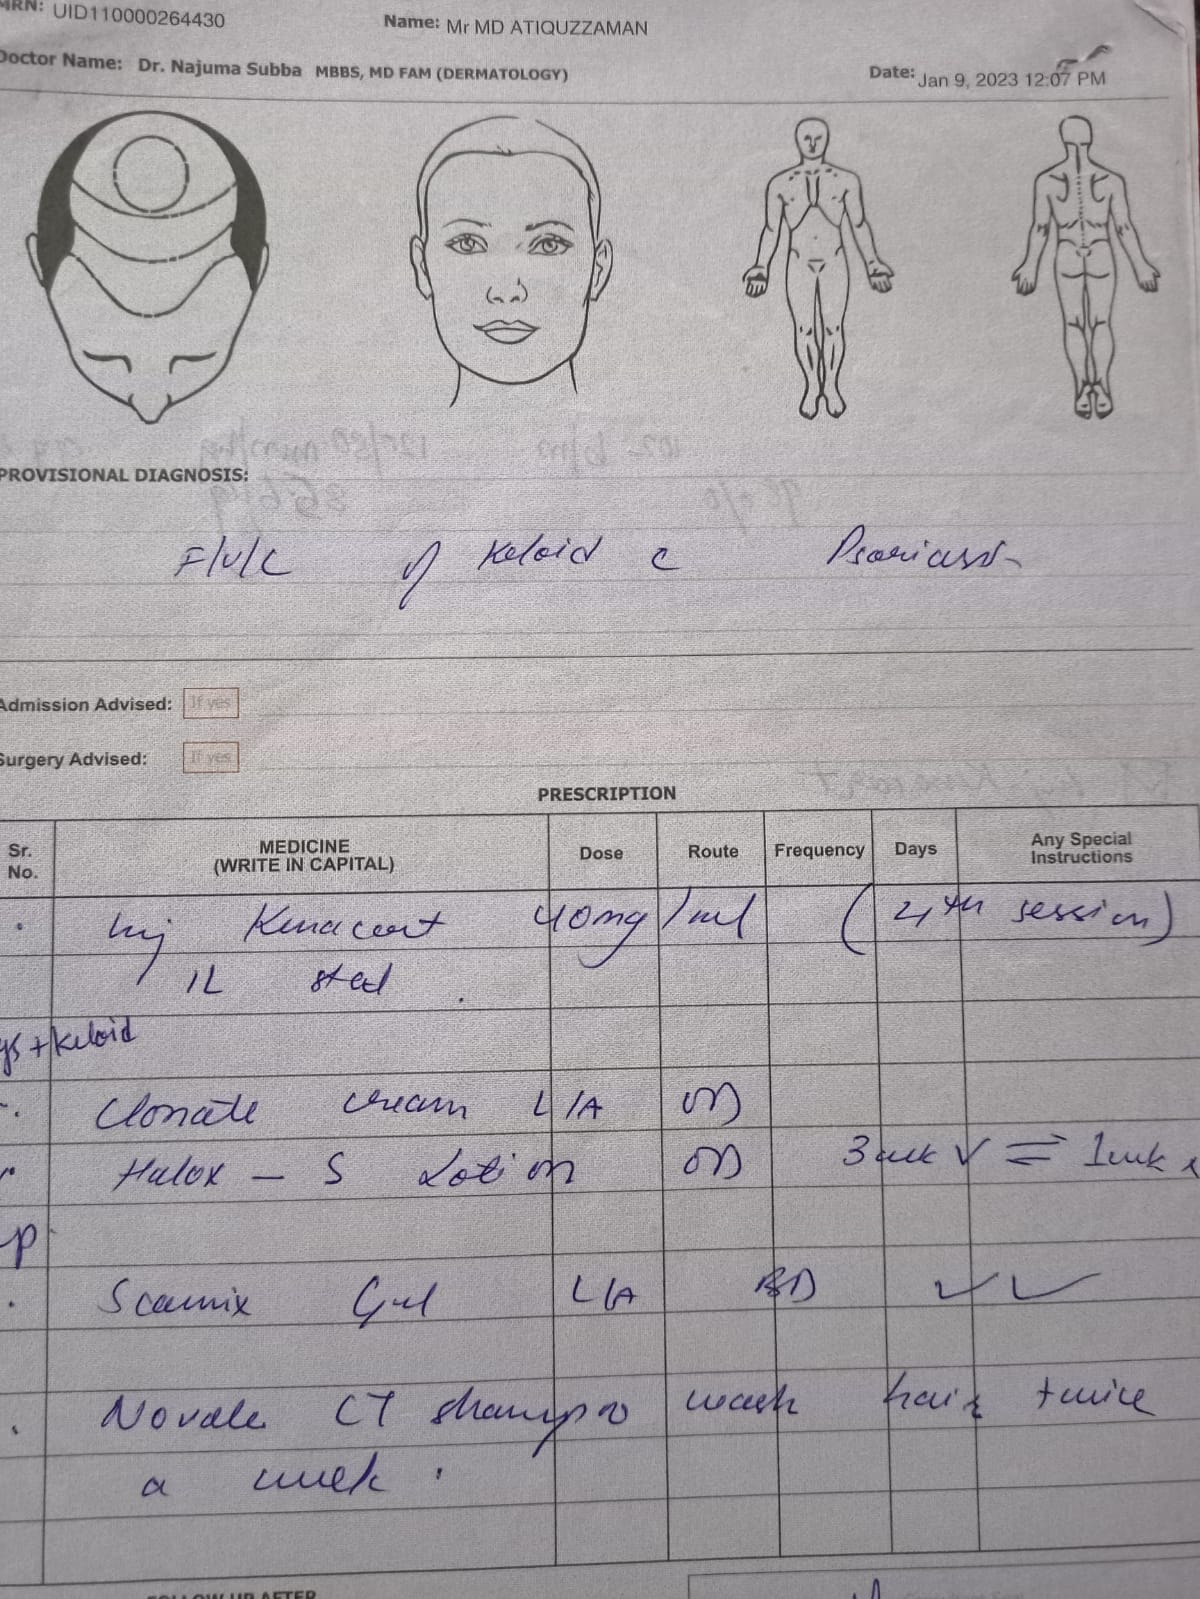 MRN: UID110000264430
Name: Mr MD ATIQUZZAMAN
Doctor Name: Dr. Najuma Subba MBBS, MD FAM (DERMATOLOGY)
Date: Jan 9, 2023 12:07 PM
PROVISIONAL DIAGNOSIS:
F/U/C of Keloid c Psoriasis
Admission Advised: If yes
Surgery Advised: If yes
PRESCRIPTION
Sr. No. MEDICINE (WRITE IN CAPITAL) Dose Route Frequency Days Any Special Instructions
Inj Kenacort 40mg/ml (4th session)
IL sted.
+ keloid
Clonate cream L/A OD
Halox - S Lotion OD 3 week 1 week
Scarnix Gel L/A BD
Novale CT shampoo wash hair twice
a week.
FOLLOW UP AFTER